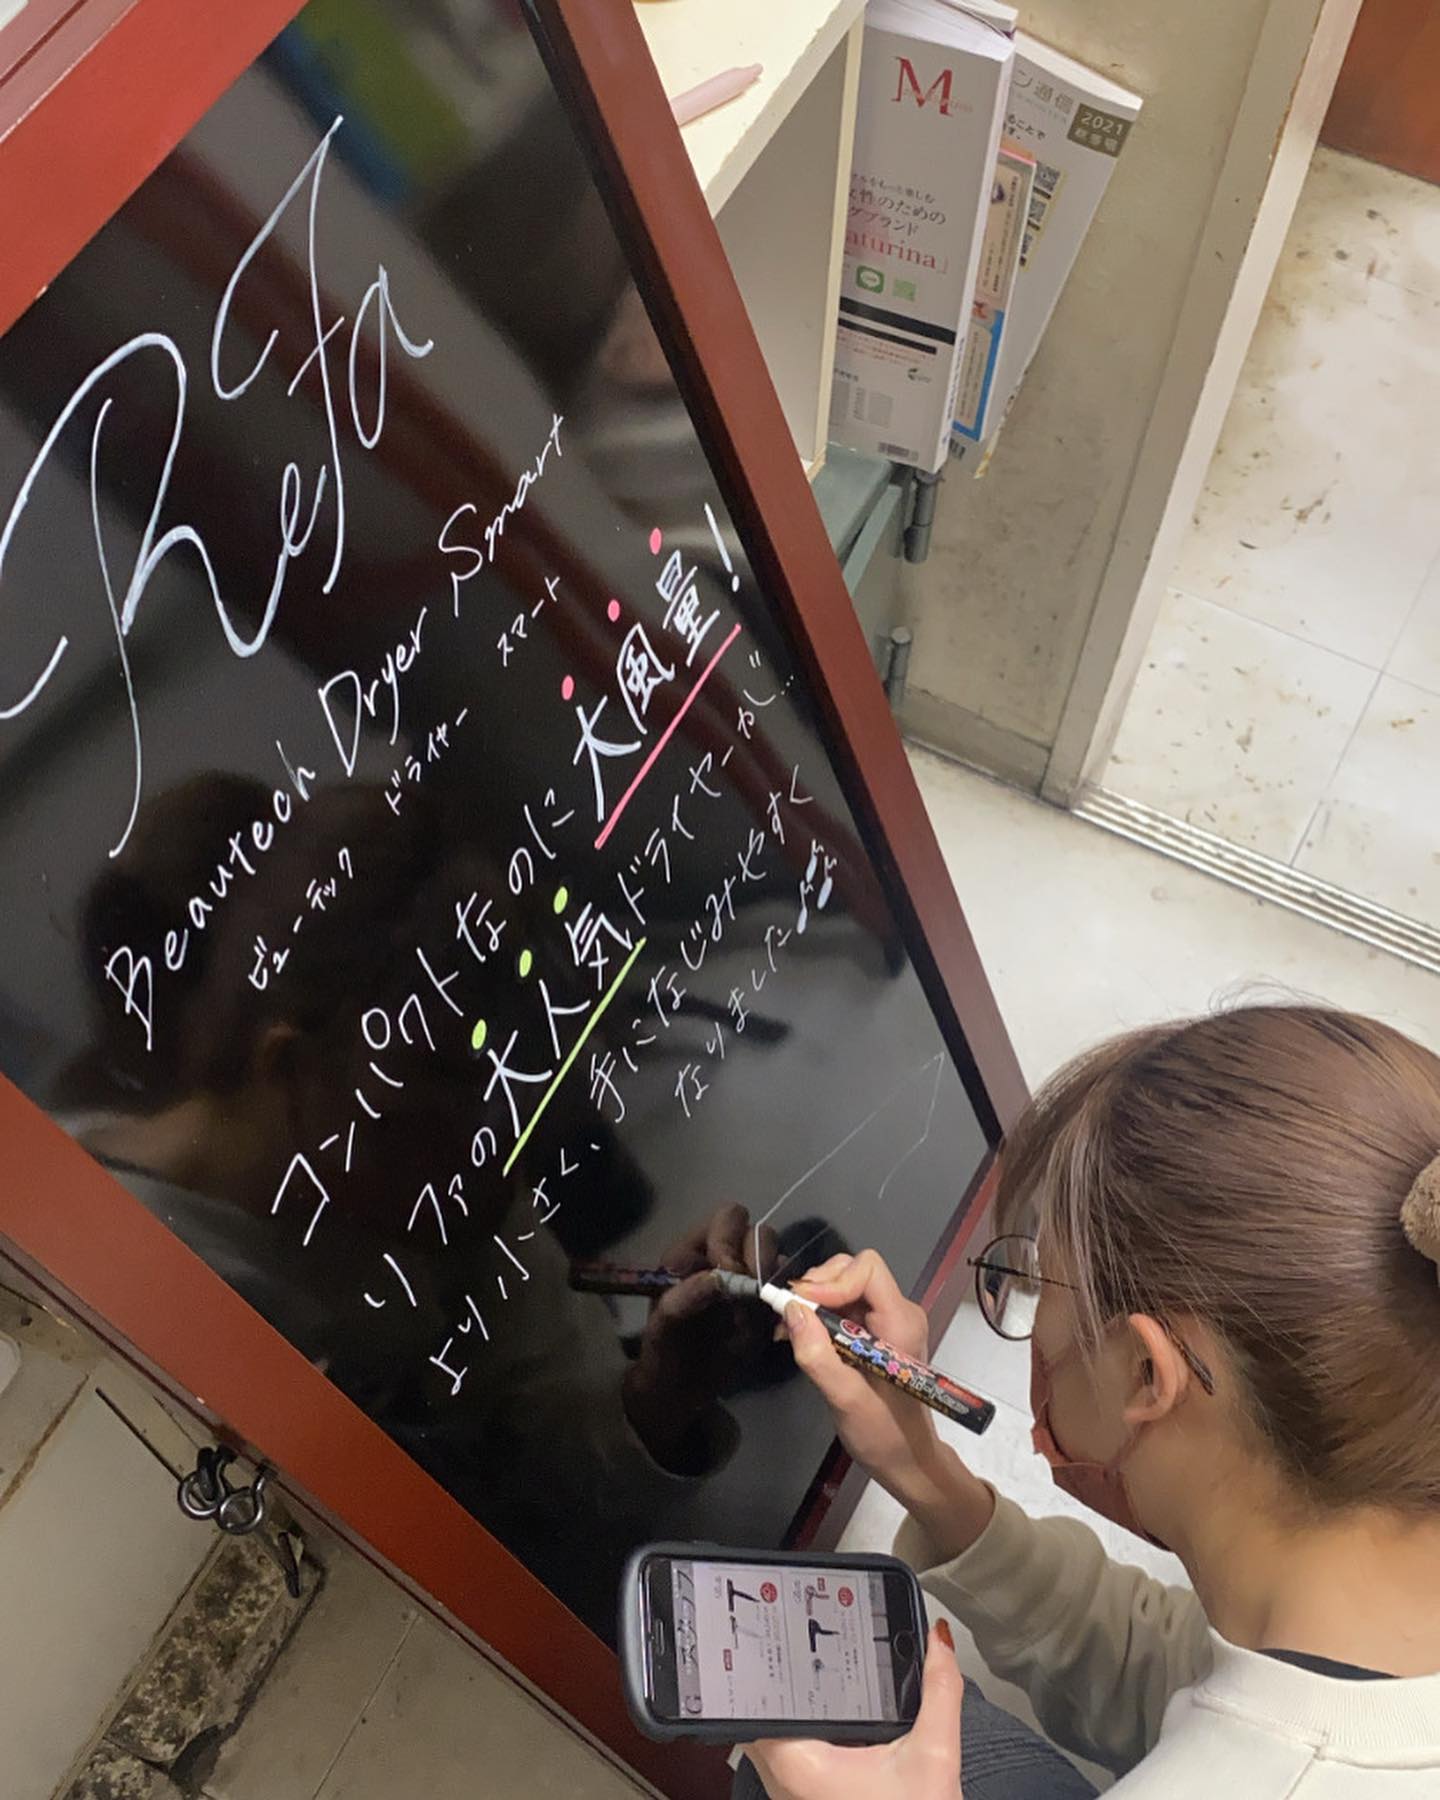 ReFa
Beautech Dryer Smart
ビューテック ドライヤー スマート
コンパクトなのに大風量!
リファの大人気ドライヤーが…
より小さく、手になじみやすく
なりました
M
女性のための
ブランド
aturina」
ン通信
2021